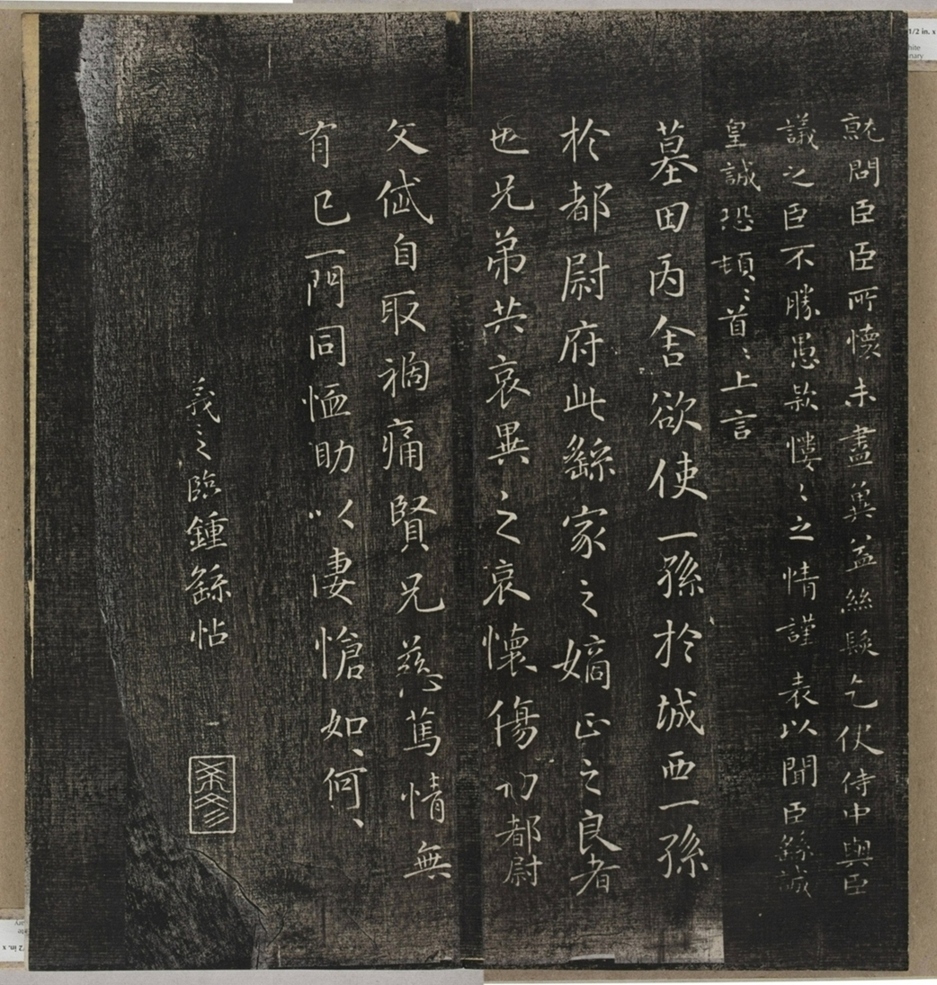 就問臣臣所懷未盡冀益絲髮乞伏侍中與臣
議之臣不勝愚款慺〻之情謹表以聞臣繇誠
皇誠恐頓〻首〻上言
墓田丙舍欲使一孫於城西一孫
於都尉府此繇家之嫡正之良者
也兄弟共哀異之哀懷傷切都尉
文岱自取禍痛賢兄慈篤情無
有已一門同恤助〻以悽愴如〻何〻
羲之臨鍾繇帖